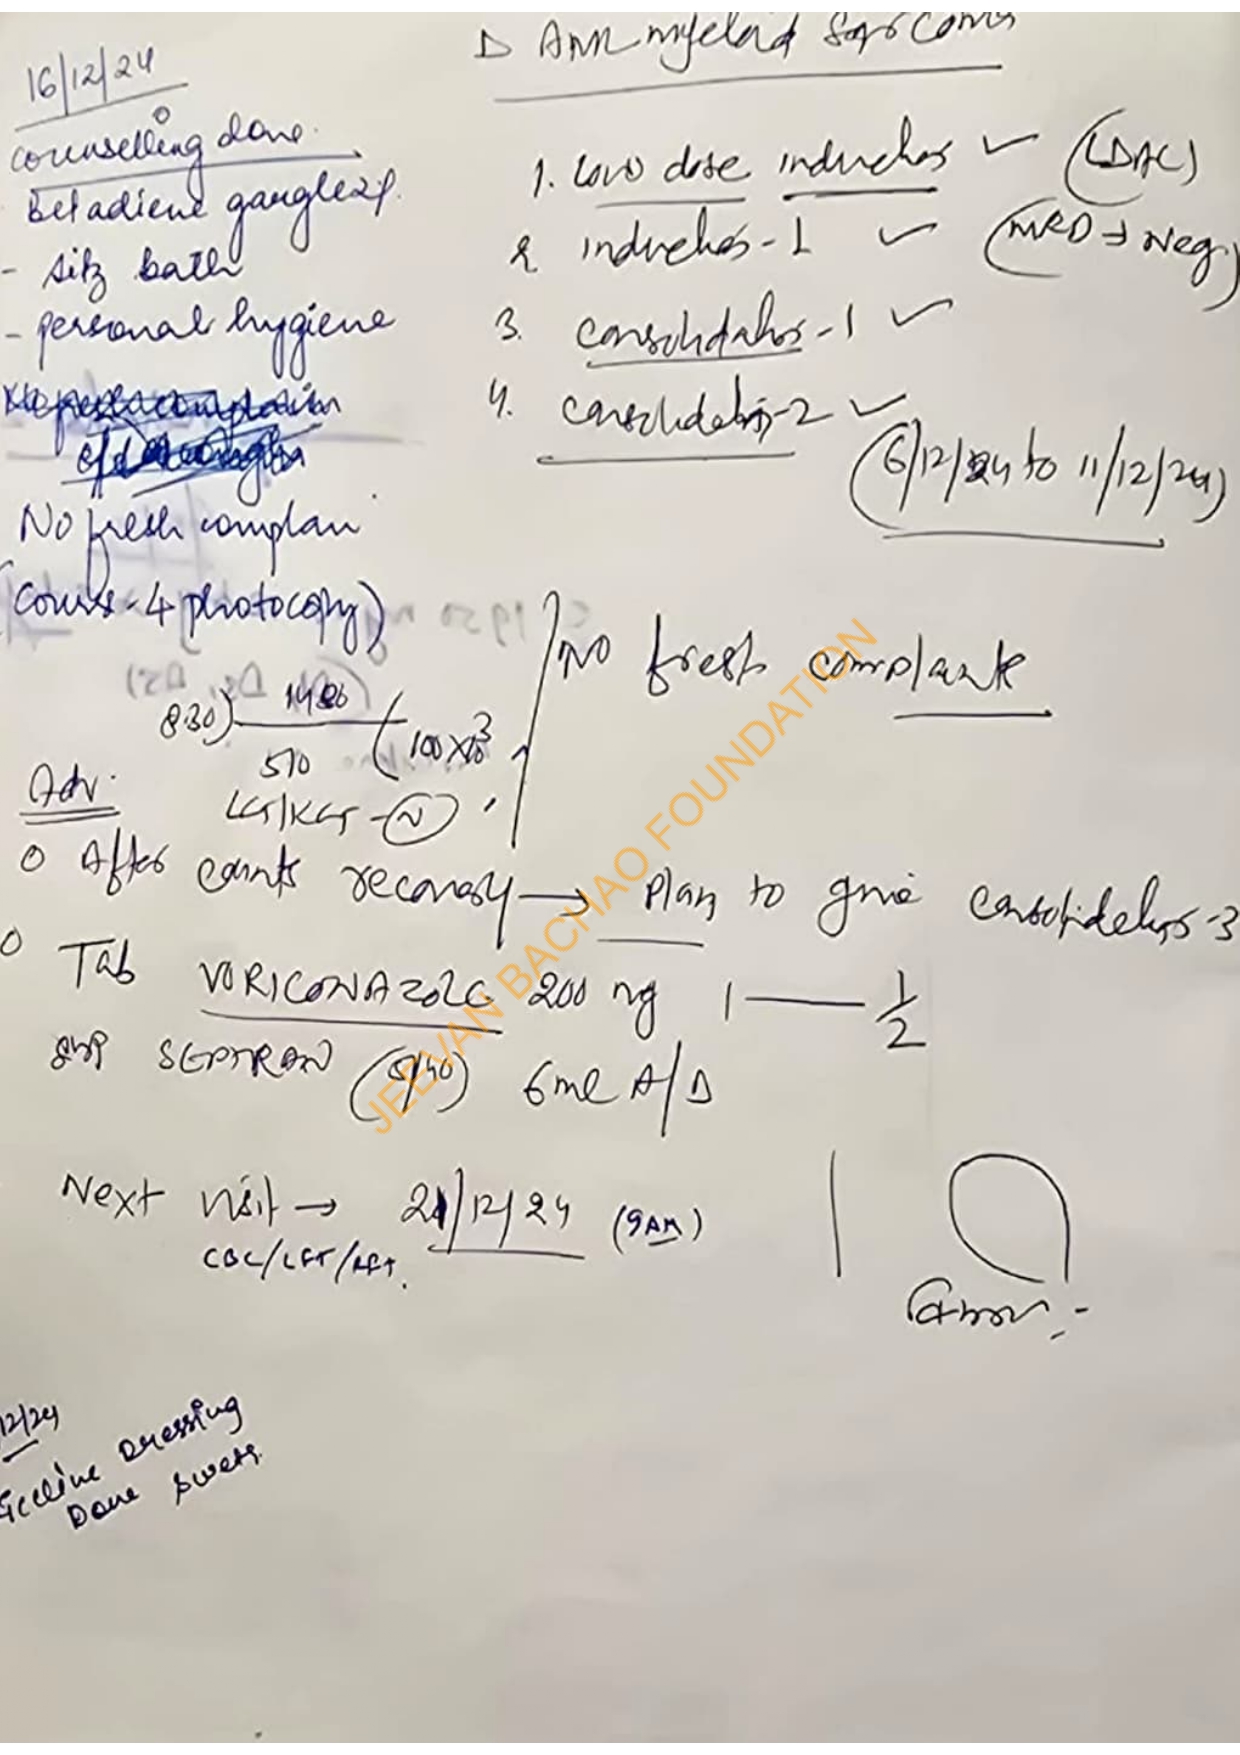 16/12/24
counselling done.
Betadiene gargle
- sitz bath
- personal hygiene
No fresh complain
(Course - 4 photocopy)
Δ AML myeloid Sarcoma
1. Low dose induction ✓ (LDAC)
2 induction - 1 ✓ (MRD → Neg)
3. consolidation - 1 ✓
4. consolidation - 2 ✓
(6/12/24 to 11/12/24)
No fresh complaint
8.30)
510
(100 x 10³
LFT/KFT - N
Adv.
After counts recovery → Plan to give consolidation - 3
Tab VORICONAZOLE 200 mg 1 — 1/2
SYP SEPTRAN (5/40) 6ml A/D
Next visit → 21/12/24 (9AM)
CBC/LFT/KFT.
12/24
Dressing
Done
JEEVAN BACHAO FOUNDATION